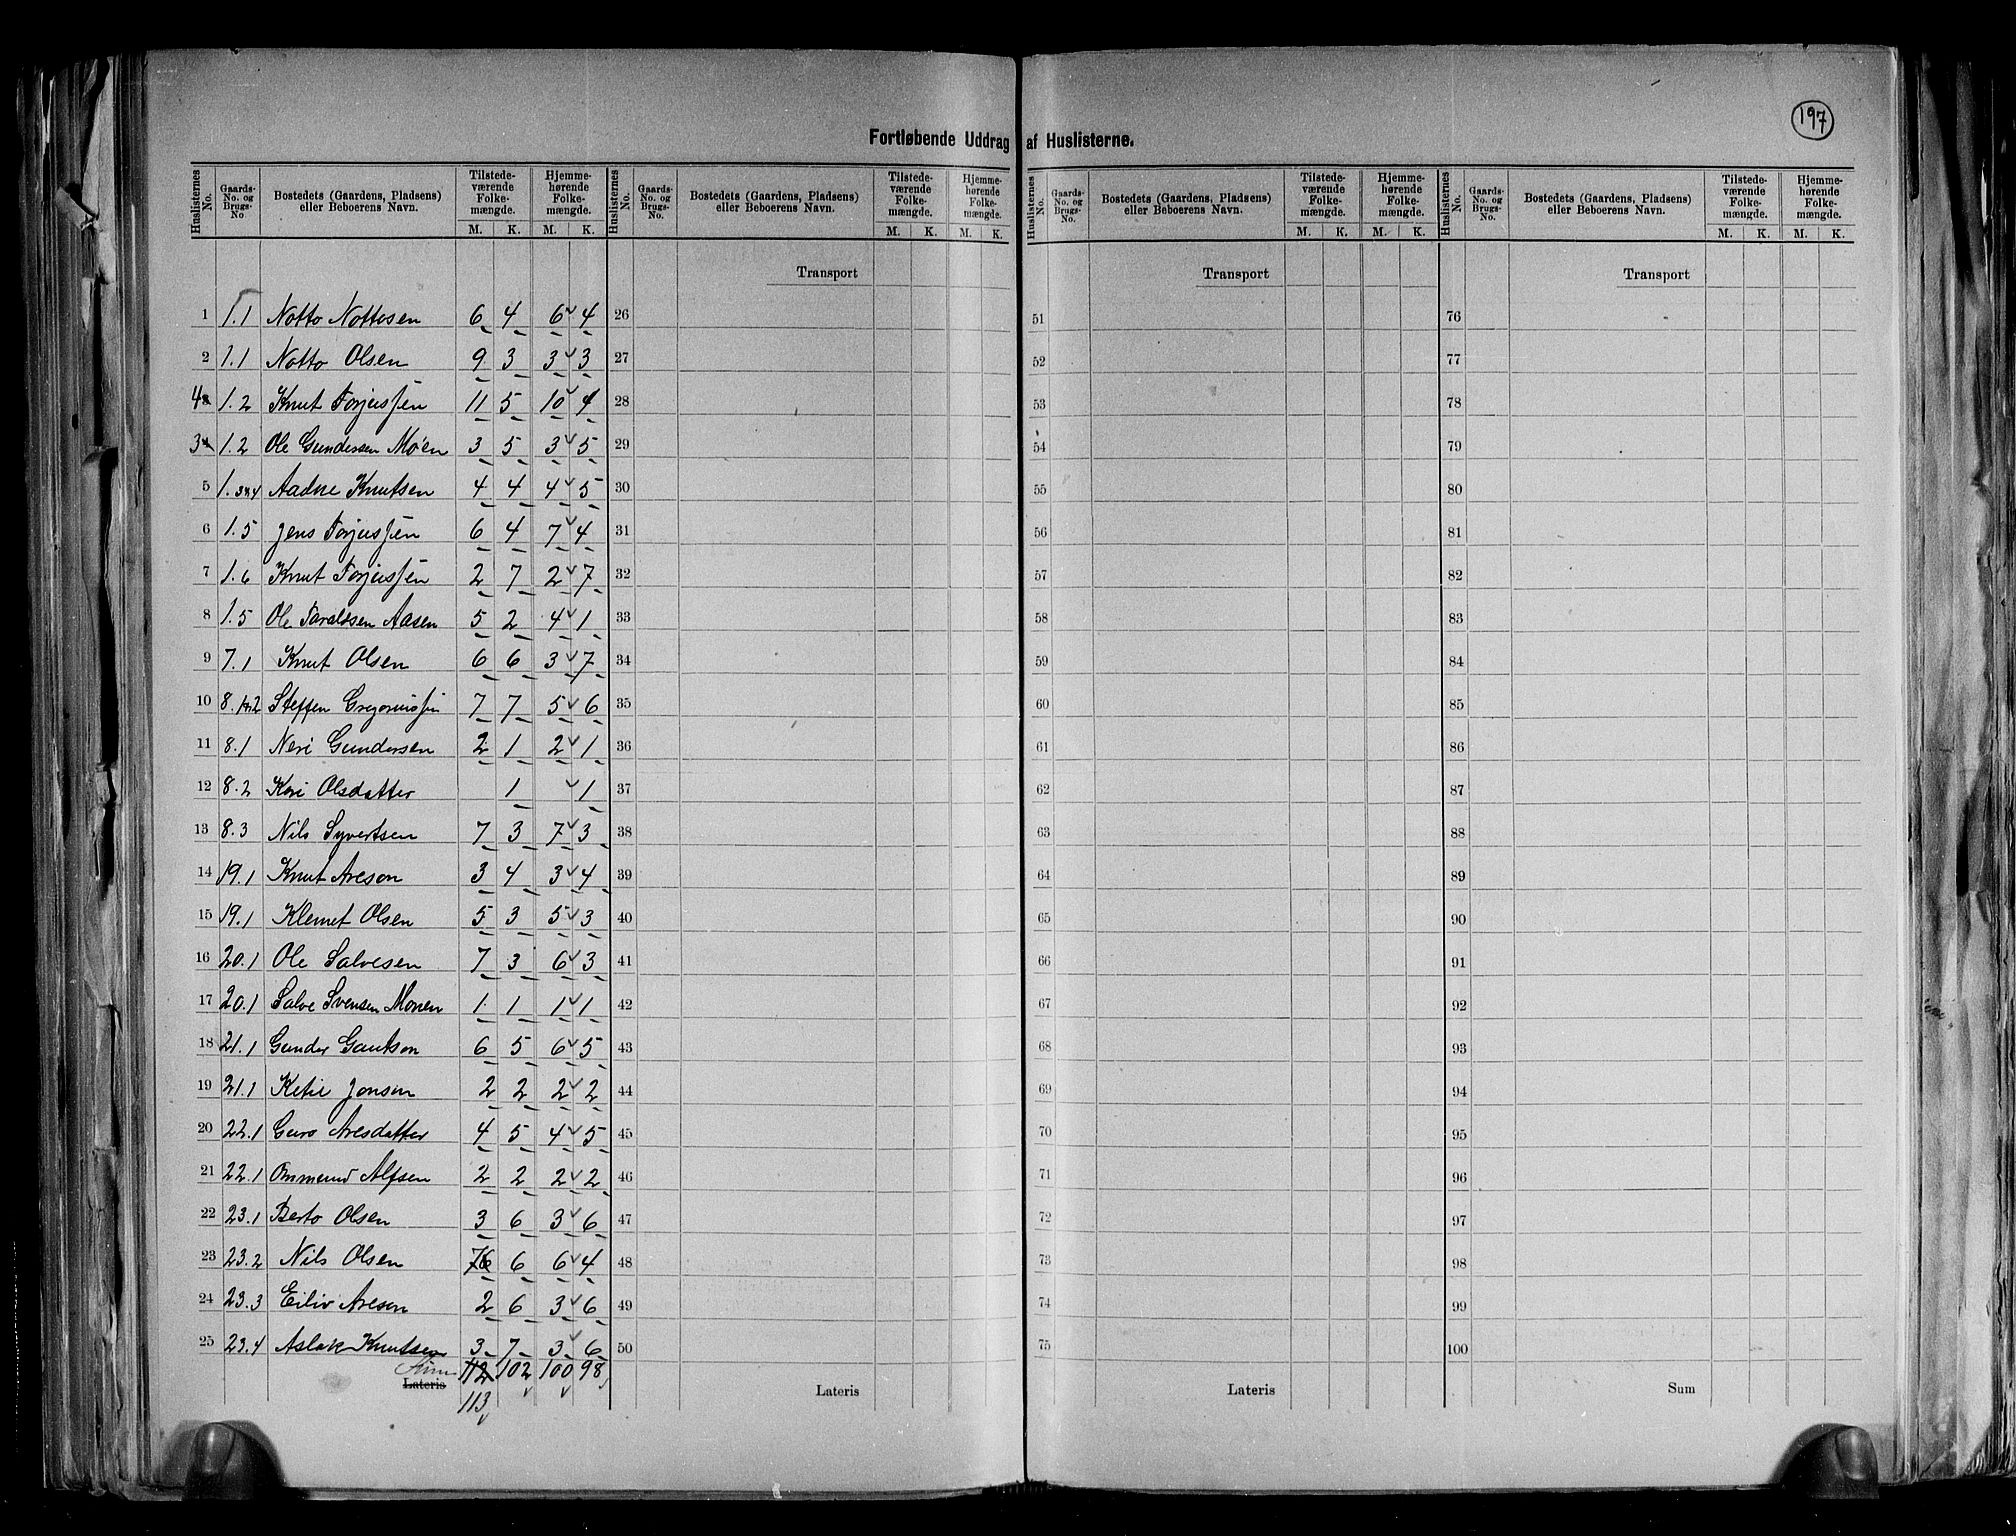 197
Fortløbende Uddrag af Huslisterne.
Huslisternes No. | Gaards-No. og Brugs-No | Bostedets (Gaardens, Pladsens) eller Beboerens Navn. | Tilstedeværende Folkemængde. M. K. | Hjemmehørende Folkemængde. M. K.
Huslisternes No. | Gaards-No. og Brugs-No. | Bostedets (Gaardens, Pladsens) eller Beboerens Navn. | Tilstedeværende Folkemængde. M. K. | Hjemmehørende Folkemængde. M. K.
Huslisternes No. | Gaards-No. og Brugs-No. | Bostedets (Gaardens, Pladsens) eller Beboerens Navn. | Tilstedeværende Folkemængde. M. K. | Hjemmehørende Folkemængde. M. K.
Huslisternes No. | Gaards-No. og Brugs-No. | Bostedets (Gaardens, Pladsens) eller Beboerens Navn. | Tilstedeværende Folkemængde. M. K. | Hjemmehørende Folkemængde. M. K.
Transport Transport Transport
1 1.1 Notto Nottesen 6 4 6 4 26 51 76
2 1.1 Notto Olsen 9 3 3 3 27 52 77
4 1.2 Knut Torjussen 11 5 10 4 28 53 78
3 1.2 Ole Gundersen Moen 3 5 3 5 29 54 79
5 1.3&4 Aadne Knutsen 4 4 4 5 30 55 80
6 1.5 Jens Torjussen 6 4 7 4 31 56 81
7 1.6 Knut Torjussen 2 7 2 7 32 57 82
8 1.5 Ole Taraldsen Aasen 5 2 4 1 33 58 83
9 7.1 Knut Olsen 6 6 3 7 34 59 84
10 8.1&2 Steffen Gregoriussen 7 7 5 6 35 60 85
11 8.1 Neri Gundersen 2 1 2 1 36 61 86
12 8.2 Kari Olsdatter 1 1 37 62 87
13 8.3 Nils Syvertsen 7 3 7 3 38 63 88
14 19.1 Knut Areson 3 4 3 4 39 64 89
15 19.1 Klemet Olsen 5 3 5 3 40 65 90
16 20.1 Ole Salvesen 7 3 6 3 41 66 91
17 20.1 Salve Svensen Monen 1 1 1 1 42 67 92
18 21.1 Gunder Gautson 6 5 6 5 43 68 93
19 21.1 Ketil Jonsen 2 2 2 2 44 69 94
20 22.1 Guro Aresdatter 4 5 4 5 45 70 95
21 22.1 Ommund Alfsen 2 2 2 2 46 71 96
22 23.1 Berto Olsen 3 6 3 6 47 72 97
23 23.2 Nils Olsen 76 6 6 4 48 73 98
24 23.3 Eiliv Areson 2 6 3 6 49 74 99
25 23.4 Aslak Knutsen 3 7 3 6 50 75 100
Sum 112 102 100 98
Lateris Lateris Lateris Sum
113